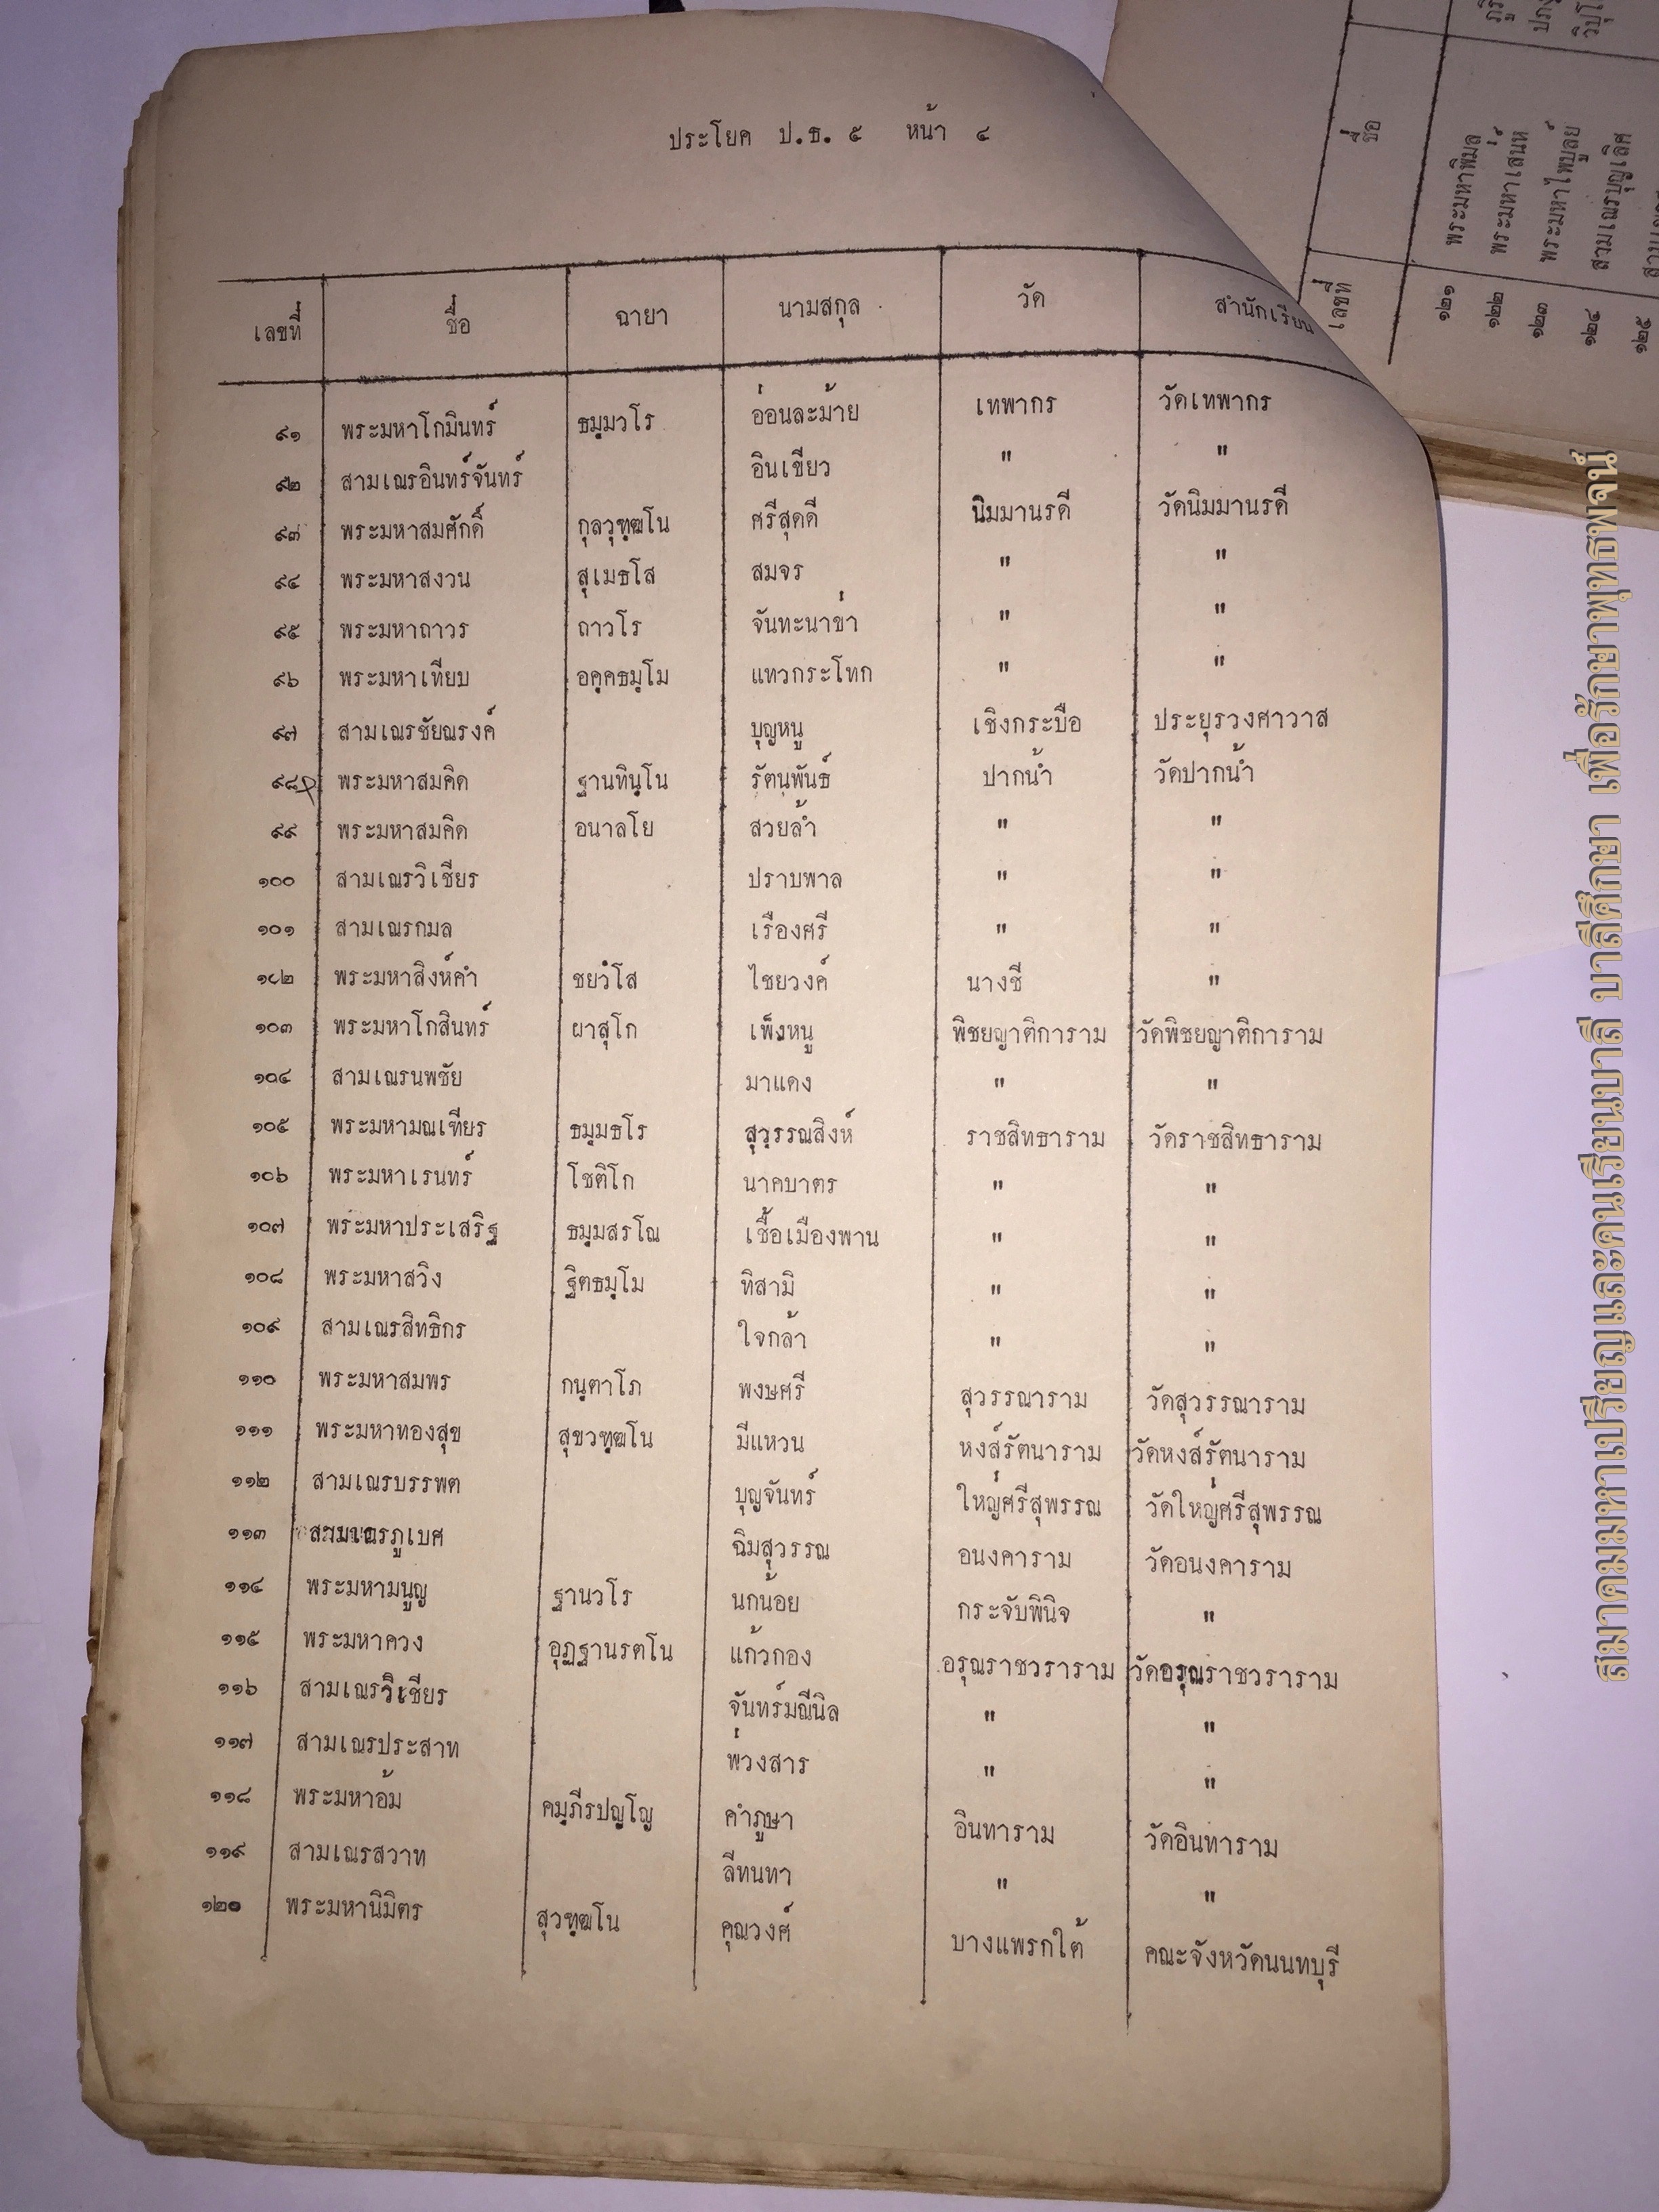 ประโยค ป.ธ. ๕ หน้า ๔
เลขที่ ชื่อ ฉายา นามสกุล วัด สำนักเรียน
๙๑ พระมหาโกมินทร์ ธมฺมวโร อ่อนละม้าย เทพากร วัดเทพากร
๙๒ สามเณรอินทร์จันทร์ อินเขียว " "
๙๓ พระมหาสมศักดิ์ กุลวุฑฺฒโน ศรีสุดดี นิมมานรดี วัดนิมมานรดี
๙๔ พระมหาสงวน สุเมธโส สมจร " "
๙๕ พระมหาถาวร ถาวโร จันทะนาข่า " "
๙๖ พระมหาเทียบ อคฺคธมฺโม แทวกระโทก " "
๙๗ สามเณรชัยณรงค์ บุญหนู เชิงกระบือ ประยุรวงศาวาส
๙๘ พระมหาสมคิด ฐานทินฺโน รัตนพันธ์ ปากน้ำ วัดปากน้ำ
๙๙ พระมหาสมคิด อนาลโย สวยล้ำ " "
๑๐๐ สามเณรวิเชียร ปราบพาล " "
๑๐๑ สามเณรกมล เรืองศรี " "
๑๐๒ พระมหาสิงห์คำ ชยวํโส ไชยวงค์ นางชี "
๑๐๓ พระมหาโกสินทร์ ผาสุโก เพ็งหนู พิชยญาติการาม วัดพิชยญาติการาม
๑๐๔ สามเณรนพชัย มาแดง " "
๑๐๕ พระมหามณเฑียร ธมฺมธโร สุวรรณสิงห์ ราชสิทธาราม วัดราชสิทธาราม
๑๐๖ พระมหาเรนทร์ โชติโก นาคบาตร " "
๑๐๗ พระมหาประเสริฐ ธมฺมสรโณ เชื้อเมืองพาน " "
๑๐๘ พระมหาสวิง ฐิตธมฺโม ทิสามิ " "
๑๐๙ สามเณรสิทธิกร ใจกล้า " "
๑๑๐ พระมหาสมพร กนฺตาโภ พงษศรี สุวรรณาราม วัดสุวรรณาราม
๑๑๑ พระมหาทองสุข สุขวฑฺฒโน มีแหวน หงส์รัตนาราม วัดหงส์รัตนาราม
๑๑๒ สามเณรบรรพต บุญจันทร์ ใหญ่ศรีสุพรรณ วัดใหญ่ศรีสุพรรณ
๑๑๓ สามเณรภูเบศ ฉิมสุวรรณ อนงคาราม วัดอนงคาราม
๑๑๔ พระมหามนูญ ฐานวโร นกน้อย กระจับพินิจ "
๑๑๕ พระมหาควง อุฏฐานรตโน แก้วกอง อรุณราชวราราม วัดอรุณราชวราราม
๑๑๖ สามเณรวิเชียร จันทร์มณีนิล " "
๑๑๗ สามเณรประสาท พ่วงสาร " "
๑๑๘ พระมหาอ้ม คมฺภีรปญฺโญ คำภูษา อินทาราม วัดอินทาราม
๑๑๙ สามเณรสวาท ลีทนทา " "
๑๒๐ พระมหานิมิตร สุวฑฺฒโน คุณวงศ์ บางแพรกใต้ คณะจังหวัดนนทบุรี
เลขที่ ชื่อ
๑๒๑ พระมหาพิมล
๑๒๒ พระมหาเสน่ห์
๑๒๓ พระมหาไพบูลย์
๑๒๔ สามเณรบุญเลิศ
๑๒๕
สมาคมมหาเปรียญและคนเรียนบาลี บาลีศึกษา เพื่อรักษาพุทธพจน์